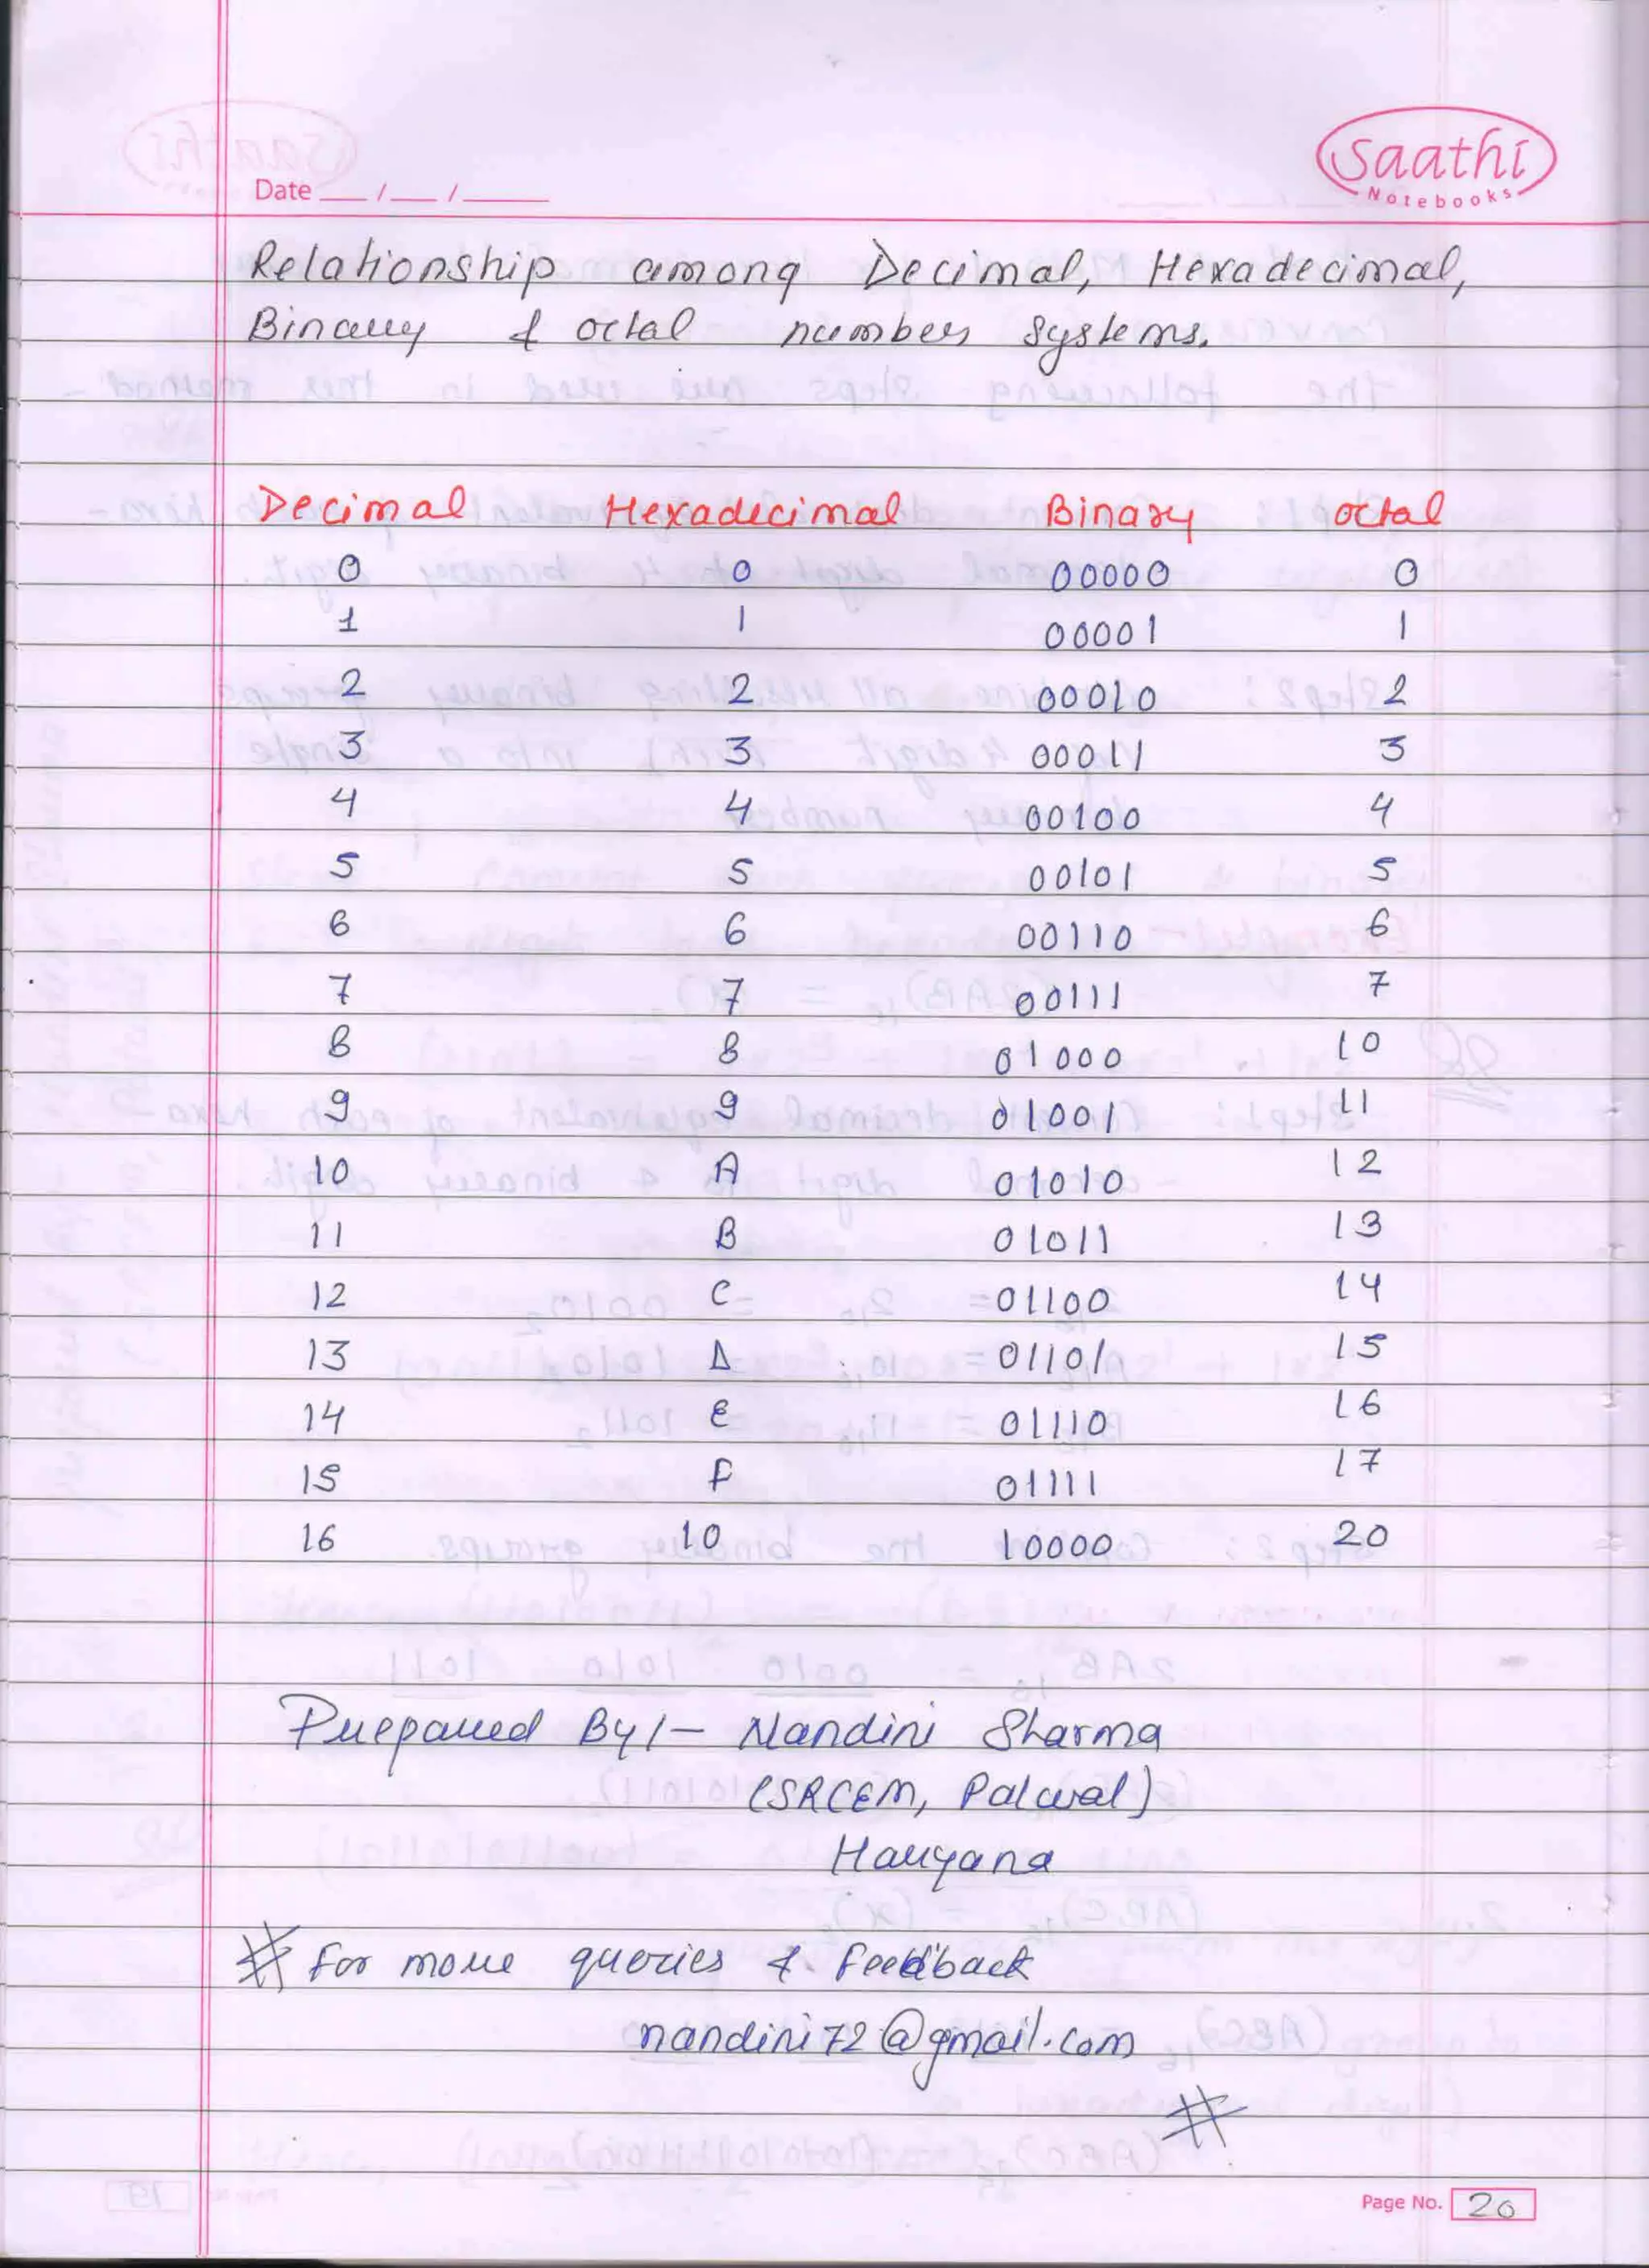 Saathi
Notebooks
Date __/__/____
Relationship among Decimal, Hexadecimal,
Binary & octal number systems.
Decimal Hexadecimal Binary octal
0 0 00000 0
1 1 00001 1
2 2 00010 2
3 3 00011 3
4 4 00100 4
5 5 00101 5
6 6 00110 6
7 7 00111 7
8 8 01000 10
9 9 01001 11
10 A 01010 12
11 B 01011 13
12 C 01100 14
13 D 01101 15
14 E 01110 16
15 F 01111 17
16 10 10000 20
Prepared By:- Nandini Sharma
(SRCEM, Palwal)
Haryana
# For more queries & feedback
nandini72@gmail.com
#
Page No. 20